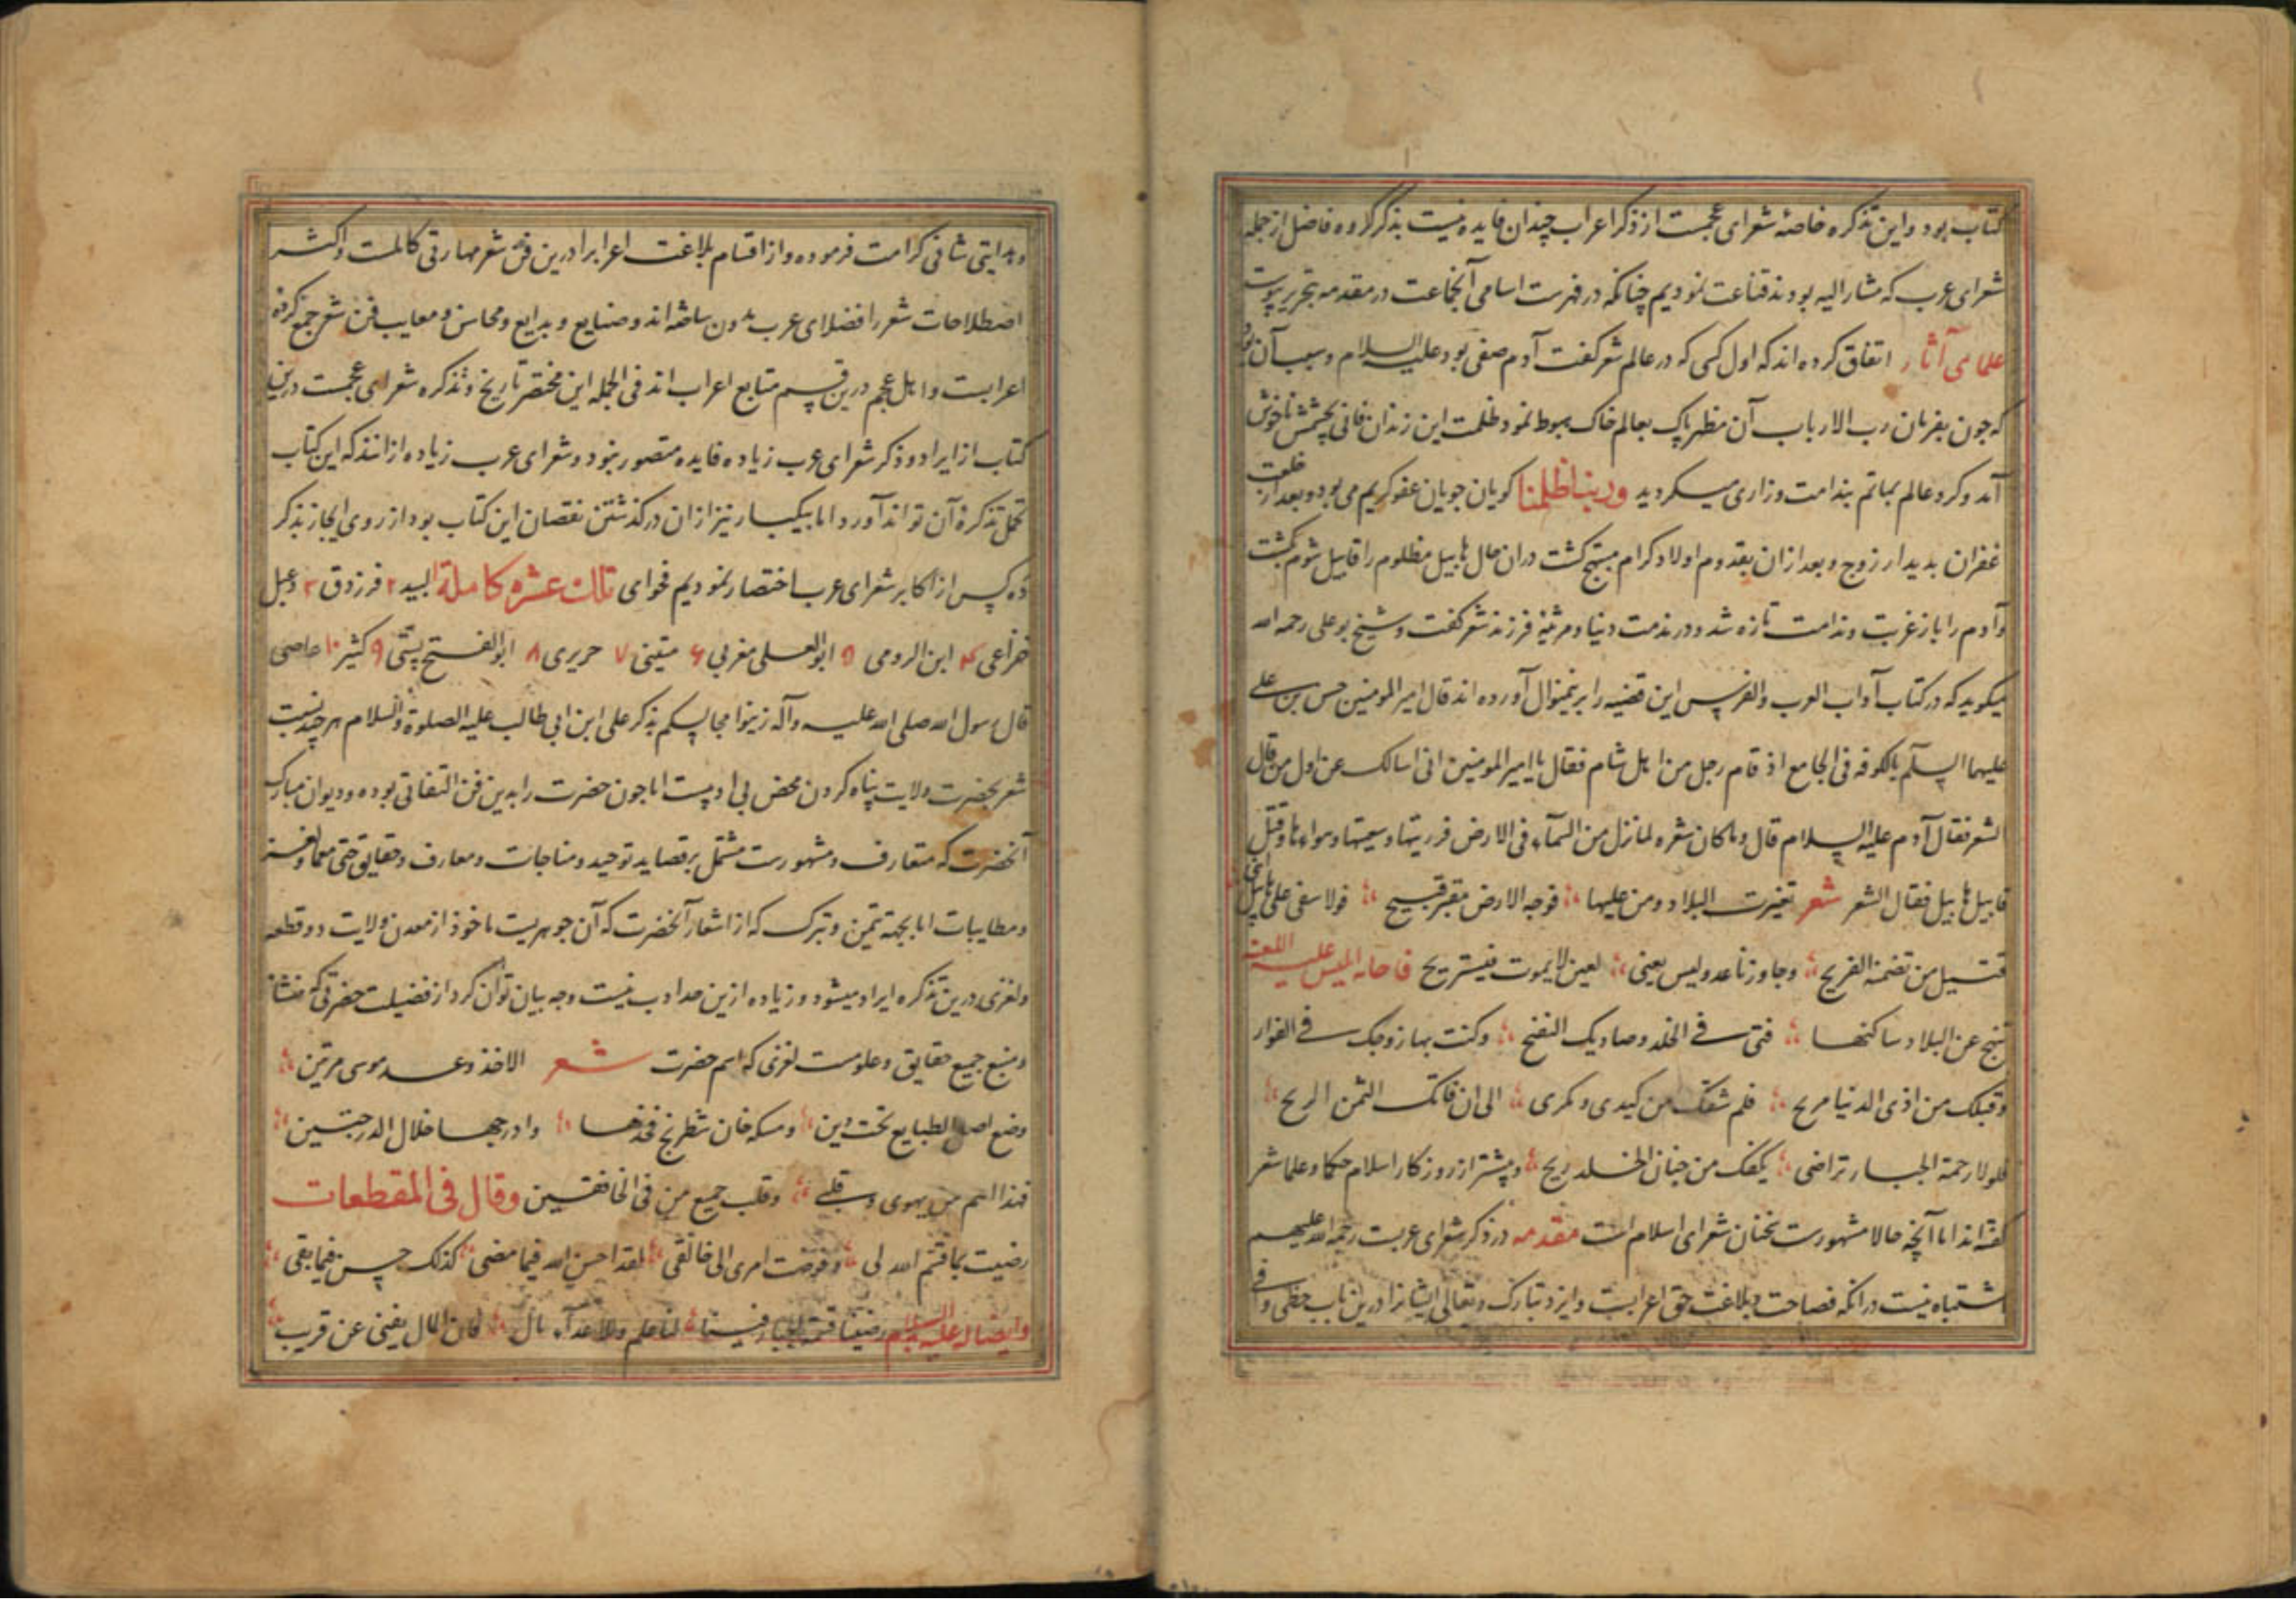 کتاب بود و این تذکره خاصهٔ شعرای عجمست از ذکر اعراب چندان فایده نیست بذکر گروه فاضل از جمله
شعرای عرب که مشار الیه بودند قناعت نمودیم چنانکه در فهرست اسامی آنجماعت در مقدمه بتحریر پیوست
علمای آثار اتفاق کرده اند که اول کسی که در عالم شعر گفت آدم صفی بود علیه السلام و سبب آن بود
که چون بفرمان رب الارباب آن مظهر پاک بعالم خاک هبوط نمود ظلمت این زندان فانی بچشمش ناخوش
آمد و گرد عالم بماتم بندامت و زاری میگردید و ربنا ظلمنا گویان جویان عفو کریم می بود و بعد از خلعت
غفران بدیدار زوج و بعد از آن بقدوم اولاد کرام مبتهج گشت در آن حال هابیل مظلوم را قابیل شوم بکشت
و آدم را باز غربت و ندامت تازه شد و در مذمت دنیا و مرثیهٔ فرزند شعر گفت و شیخ بوعلی رحمه الله
میگوید که در کتاب آداب العرب والفرس این قضیه را برینمنوال آورده اند قال امیرالمومنین حسن بن علی
علیهما السلم بالکوفه فی الجامع اذ قام رجل من اهل شام فقال یا امیر المومنین انی اسالک عن اول من قال
الشعر فقال آدم علیه السلام قال و ما کان شعره لما نزل من السمآء فی الارض فرریتها و سعیتها و مواءها و قتل
قابیل هابیل فقال الشعر شعر تغیرت البلاد و من علیها فوجه الارض مغبر قبیح فوا اسفی علی هابیل ابنی
قتیل من تضمنه الضریح و جاورنا عدو لیس یعنی لعین لا یموت فیستریح فاجابه ابلیس علیه اللعنه
تنح عن البلاد و ساکنها فتی فی الخلد و صادیک الفتح و کنت بها زوجک فی القرار
و قبلک من اذی الدنیا مریح فلم تنفک من کیدی و مکری الی ان فاتک الثمن الریح
فلولا رحمة الجبار تراضی بکفک من جنان الخلد ریح و پیشتر از روزگار اسلام حکما و علما شعر
گفته اند اما آنچه حالا مشهورست سخنان شعرای اسلام است مقدمه در ذکر شعرای عربست رحمة الله علیهم
اشتباه نیست در آنکه فصاحت و بلاغت حق اعرابست و ایزد تبارک و تعالی ایشانرا درین باب حظی وافی
و هدایتی شافی کرامت فرموده و از اقسام بلاغت اعراب را درین فن شعر مهارتی کاملست و اکثر
اصطلاحات شعر را فضلای عرب مدون ساخته اند و صنایع و بدایع و محاسن و معایب فن شعر جمع کرده
اعرابست و اهل عجم درین قسم متابع اعراب اند فی الجمله این مختصر تاریخ و تذکره شعرای عجمست درین
کتاب از ایراد و ذکر شعرای عرب زیاده فایده متصور نبود و شعرای عرب زیاده از آنند که این کتاب
تحمل تذکرهٔ آن تواند آورد اما بیکبار نیز از آن در گذشتن نقصان این کتاب بود از روی ایجاز بذکر
ده کس از اکابر شعرای عرب اختصار نمودیم فحوای تلک عشرة کاملة لبید ۲ فرزدق ۳ دعبل
خزاعی ۴ ابن الرومی ۵ ابو العلی مغربی ۶ متنبی ۷ حریری ۸ ابو الفتح بستی ۹ کثیر ۱۰ حاصی
قال رسول الله صلی الله علیه و آله زینوا مجالسکم بذکر علی ابن ابی طالب علیه الصلوة والسلام هر چند نسبت
شعر بحضرت ولایت پناه کردن محض بی ادبیست اما چون حضرت را بدین فن التفاتی بوده و دیوان مبارک
آنحضرت که متعارف و مشهورست مشتمل بر قصاید توحید و مناجات و معارف و حقایق حتی معما و لغز
و مطایبات اما بجهة تیمن و تبرک که از اشعار آنحضرت که آن جوهریست ماخوذ از معدن ولایت دو قطعه
و لغزی درین تذکره ایراد میشود و زیاده ازین حد ادب نیست و چه بیان توان کرد از فضیلت حضرتی که منشا
و منبع جمیع حقایق و علومست لغزی که اسم حضرت شعر الا خذ وعد موسی مرتین
وضع اصل الطبایع تحت ذین و سکه خان شطرنج فخذها و ادرجها خلال الدرجتین
فهذا اسم من یهوی و قلبی و قلب جمیع من فی الخافقین و قال فی المقطعات
رضیت بما قسم الله لی و فوضت امری الی خالقی لقد احسن الله فیما مضی کذلک یحسن فیما بقی
و ایضا له علیه السلام رضینا قسمة الجبار فینا لنا علم و للاعدآء مال فان المال یفنی عن قریب